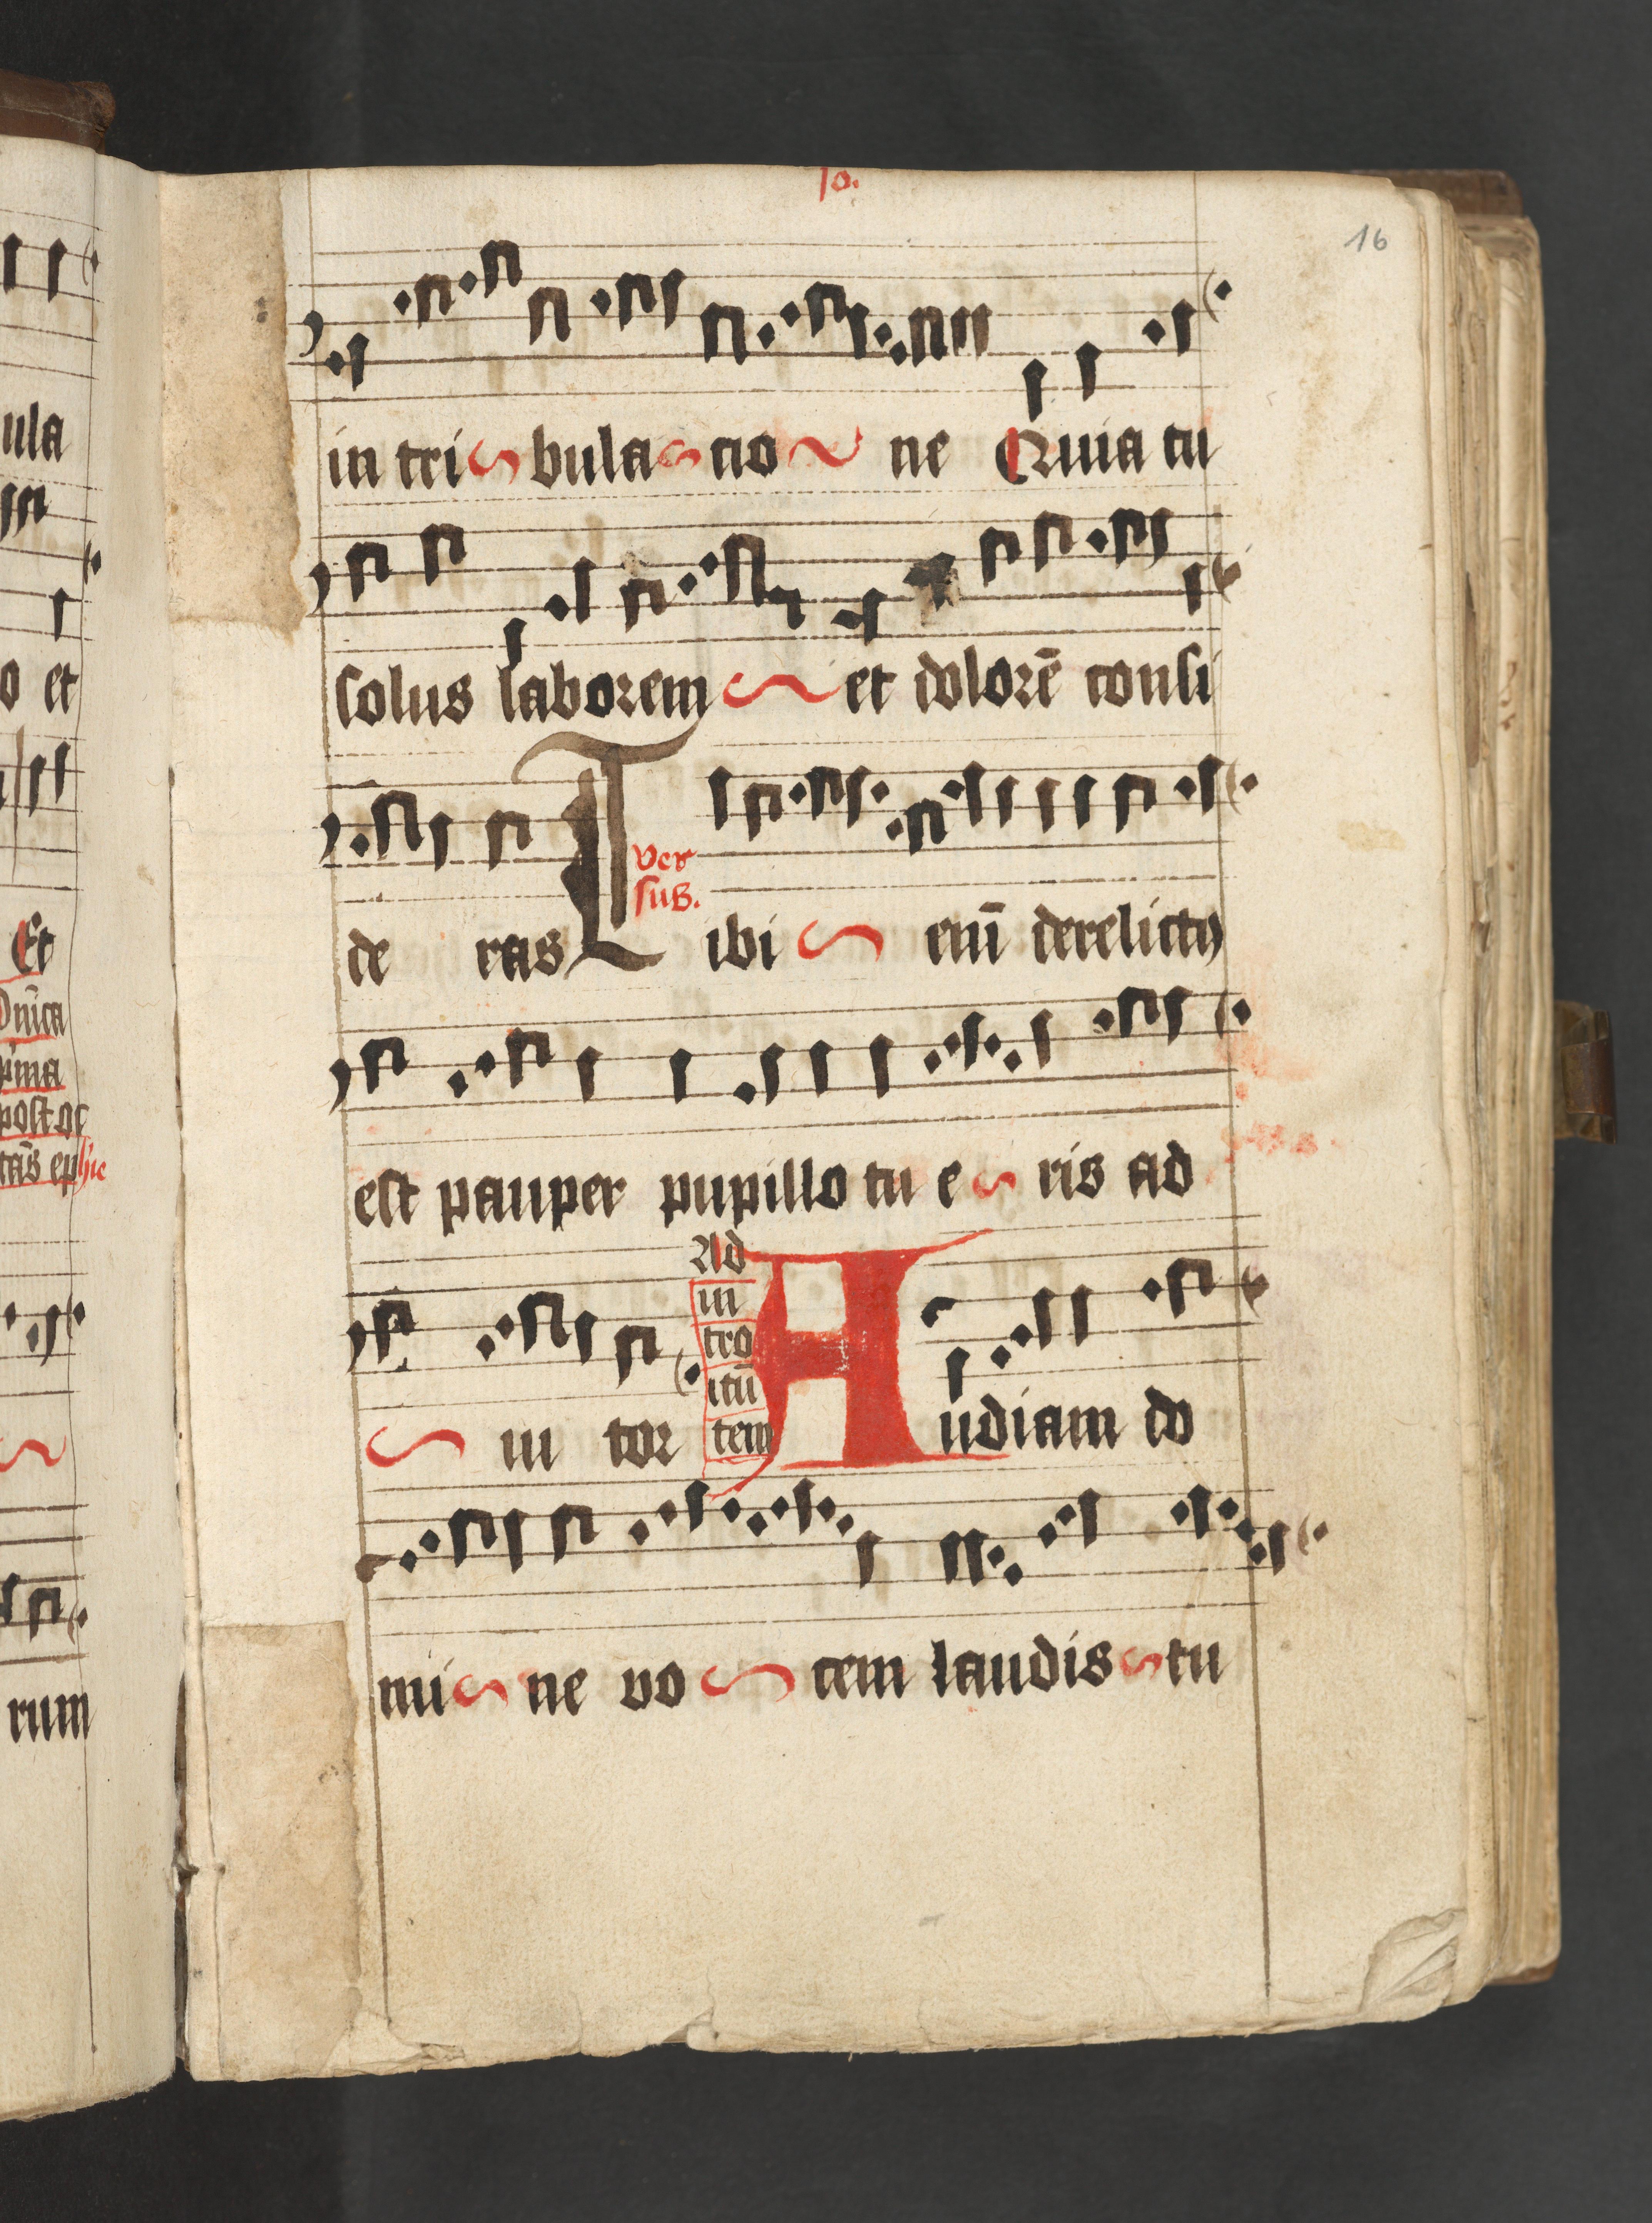 ula
o et
Et
Dn̄ica
p'ma
post oc
tas̄ ep̄hie
rum
10.
16
in tri bula cio ne Quia tu
solus laborem et dolorē consi
de ras
ver
sus.
Tibi enī derelictꝯ
est pauper pupillo tu e ris ad
iu tor
Ad
in
tro
itū
tem
Audiam do
mi ne vo cem laudis tu